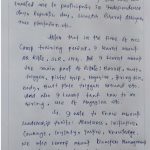 enabled me to participate in Independence
days Republic day, Swachh Bharat Abhiyan,
Tree plantation etc.
After that in the firing of NCC
Camp training period. I learnt about
Rifle, SLR, LMG. And I learnt about
the main part of Rifle: Barrel, butt,
trigger, pistol grip, magazine,
butt plate trigger guard etc.
and also I learnt how to do
aiming, use of Magazine etc.
I able to know about
leadership traits: Alertness, initiative,
Courage, loyalty, Justice, Knowledge,
We also learnt about Disaster Management